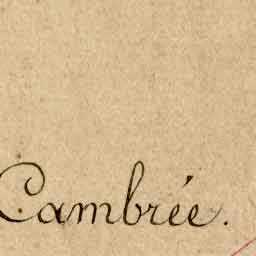 Cambrée.